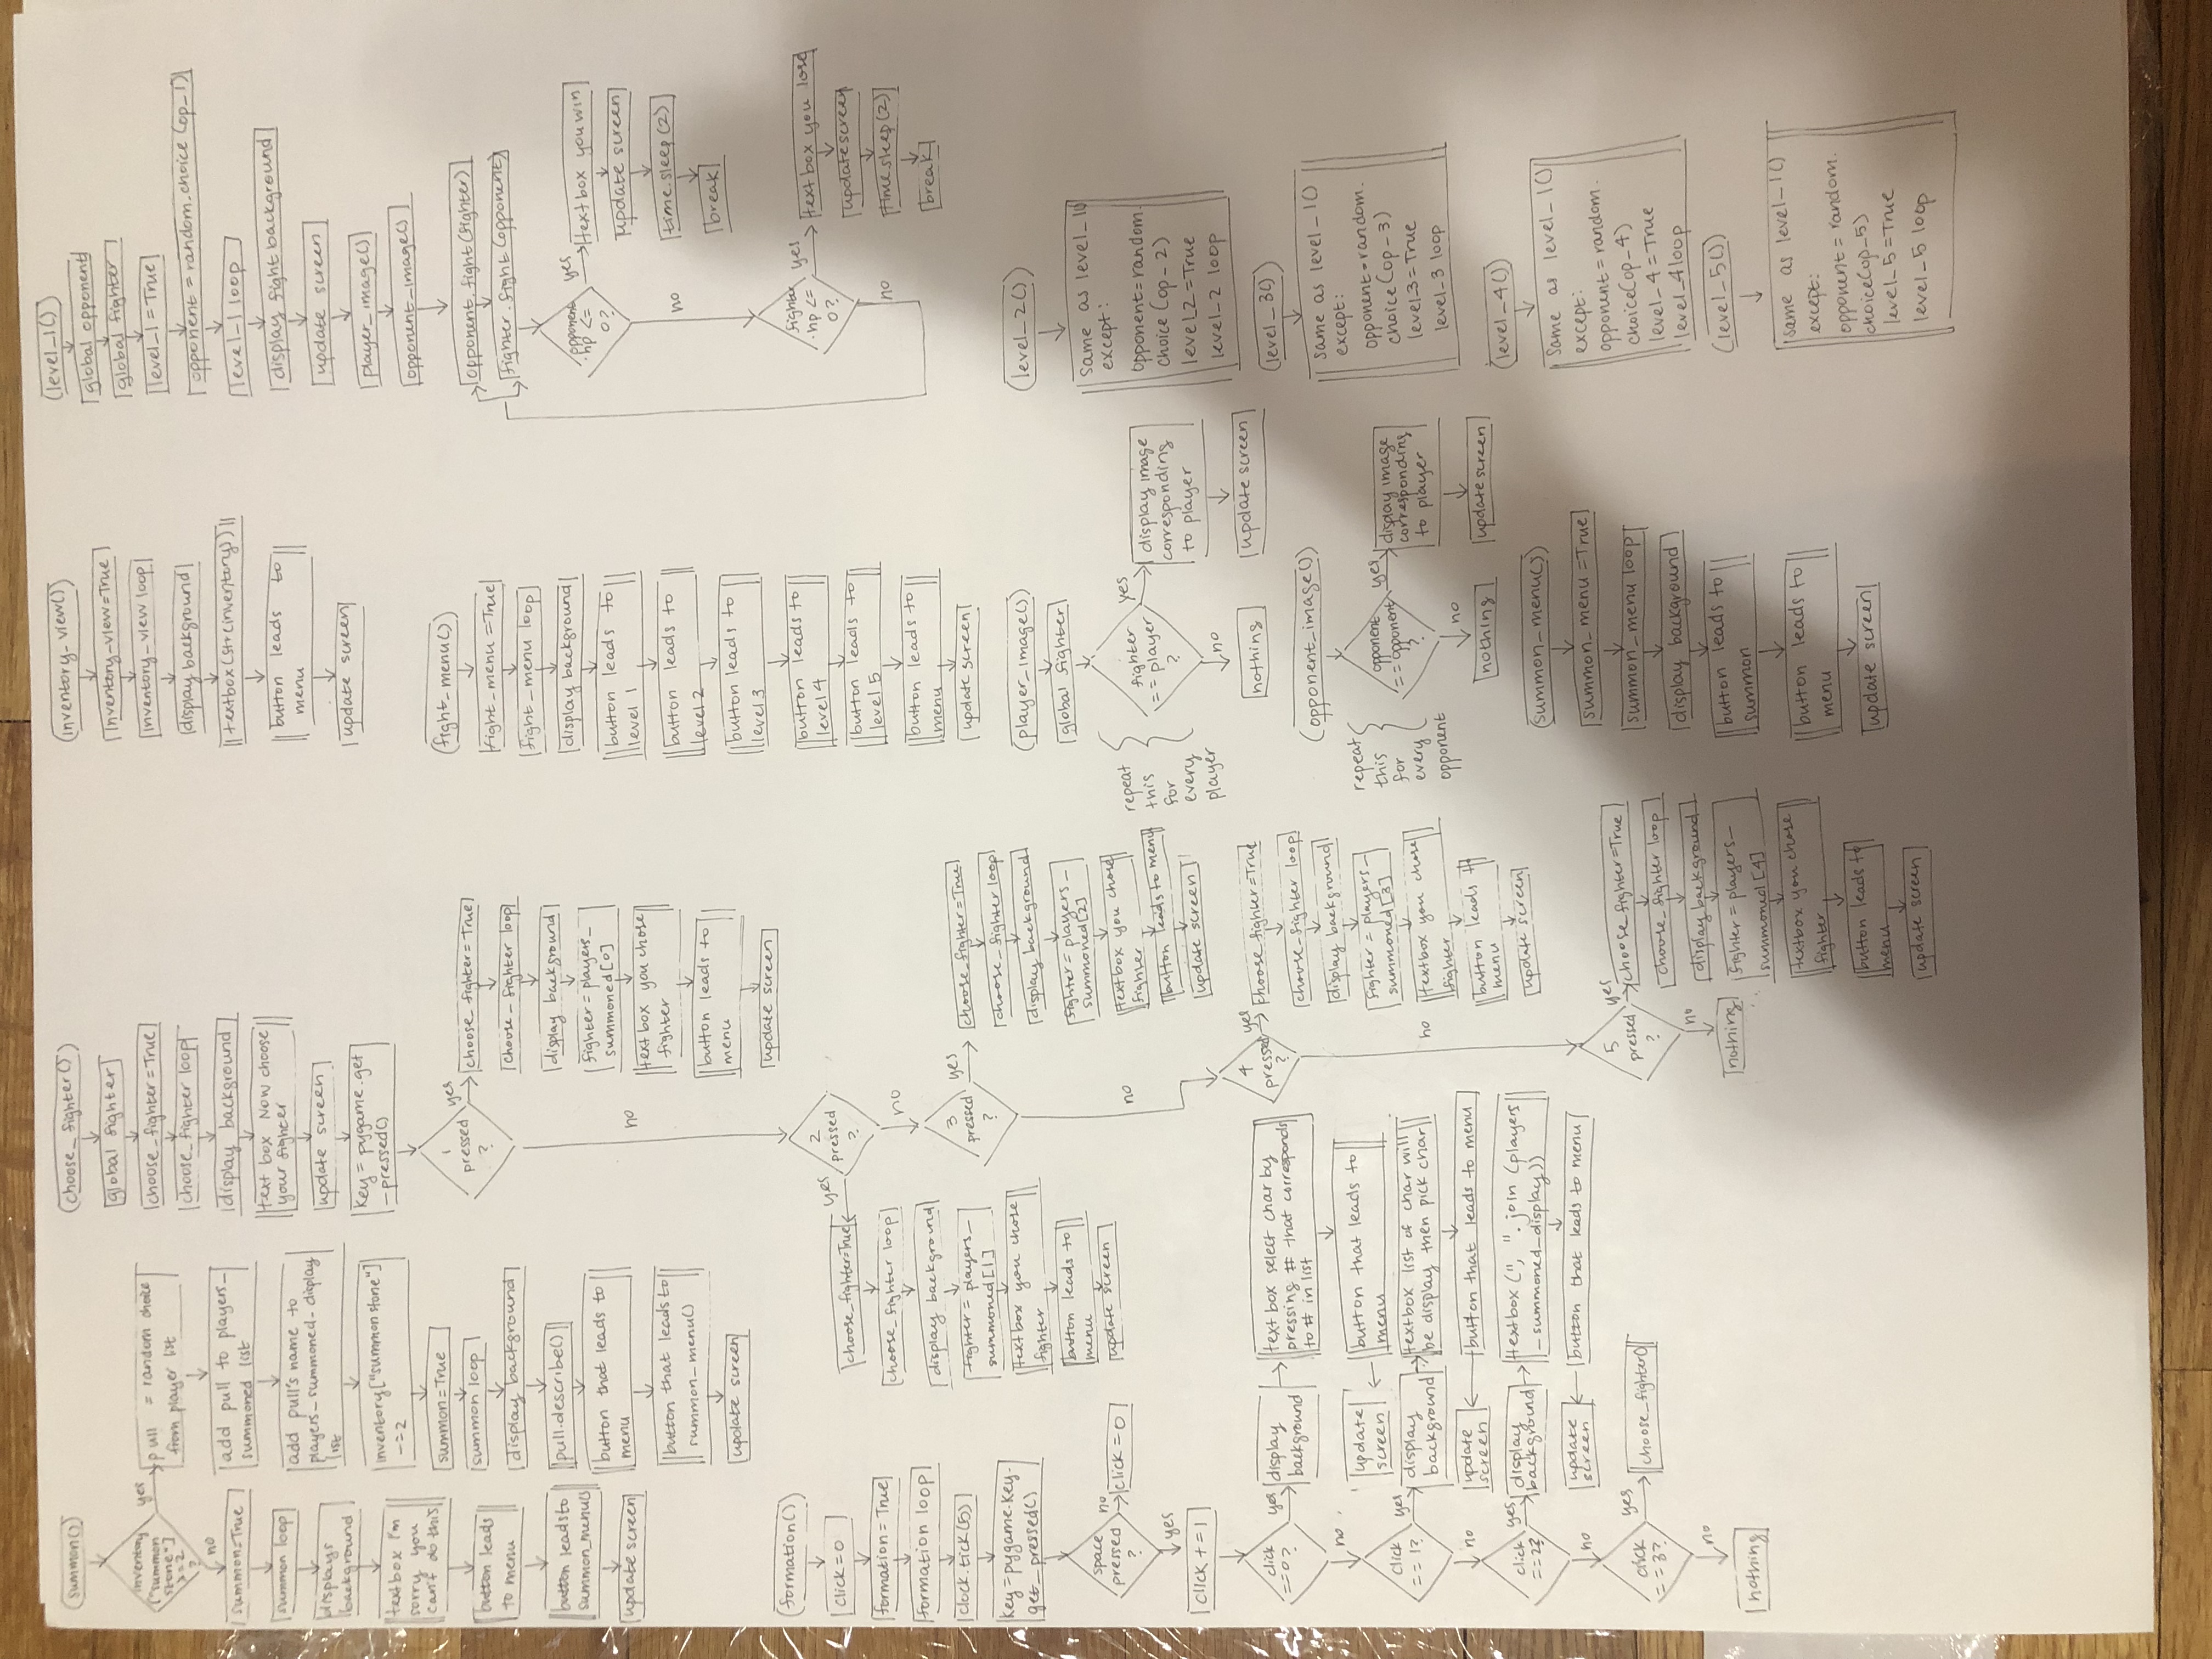 summon()
inventory
["summon
stone"]
>=2
?
yes
pull = random choice
from player list
add pull to players_
summoned list
add pull's name to
players_summoned_display
list
inventory["summon stone"]
-=2
summon=True
summon loop
display background
pull.describe()
button that leads to
menu
button that leads to
summon_menu()
update screen
no
summon=True
summon loop
displays
background
textbox I'm
sorry you
can't do this
button leads
to menu
button leads to
summon_menu()
update screen
formation()
click=0
formation = True
formation loop
clock.tick(5)
key=pygame.key.
get_pressed()
space
pressed
?
no
click=0
yes
click +=1
click
==0?
yes
display
background
text box select char by
pressing # that corresponds
to # in list
button that leads to
menu
update
screen
no
click
==1?
yes
display
background
textbox list of char will
be display then pick char
button that leads to menu
update
screen
no
click
==2?
yes
display
background
textbox (", ".join (players
_summoned_display))
button that leads to menu
update
screen
no
click
==3?
yes
choose_fighter()
no
nothing
choose_fighter()
global fighter
choose_fighter=True
choose_fighter loop
display background
text box Now choose
your fighter
update screen
key = pygame.get
_pressed()
1
pressed
?
yes
choose_fighter=True
choose_fighter loop
display background
fighter=players_
summoned[0]
text box you chose
fighter
button leads to
menu
update screen
no
2
pressed
?
yes
choose_fighter=True
choose_fighter loop
display background
fighter = players_
summoned[1]
textbox you chose
fighter
button leads to
menu
update screen
no
3
pressed
?
yes
choose_fighter=True
choose_fighter loop
display background
fighter = players_
summoned[2]
textbox you chose
fighter
button leads to menu
update screen
no
4
pressed
?
yes
choose_fighter=True
choose_fighter loop
display background
fighter = players_
summoned[3]
textbox you chose
fighter
button leads to
menu
update screen
no
5
pressed
?
yes
choose_fighter=True
choose_fighter loop
display background
fighter = players_
summoned[4]
textbox you chose
fighter
button leads to
menu
update screen
no
nothing
inventory_view()
inventory_view=True
inventory_view loop
display background
textbox(str(inventory))
button leads to
menu
update screen
fight_menu()
fight_menu=True
fight_menu loop
display background
button leads to
level 1
button leads to
level 2
button leads to
level 3
button leads to
level 4
button leads to
level 5
button leads to
menu
update screen
player_image()
global fighter
repeat
this
for
every
player
fighter
==player
?
yes
display image
corresponding
to player
update screen
no
nothing
opponent_image()
repeat
this
for
every
opponent
opponent
==opponent
?
yes
display image
corresponding
to player
update screen
no
nothing
summon_menu()
summon_menu=True
summon_menu loop
display background
button leads to
summon
button leads to
menu
update screen
level_1()
global opponent
global fighter
level_1=True
opponent = random.choice (op_1)
level_1 loop
display fight background
update screen
player_image()
opponent_image()
opponent.fight(fighter)
fighter.fight(opponent)
opponent
.hp <=
0?
yes
text box you win
update screen
time.sleep(2)
break
no
fighter
.hp <=
0?
yes
text box you lose
update screen
time.sleep(2)
break
no
level_2()
same as level_1()
except:
opponent=random.
choice (op_2)
level_2=True
level_2 loop
level_3()
same as level_1()
except:
opponent=random.
choice(op_3)
level_3=True
level_3 loop
level_4()
same as level_1()
except:
opponent=random.
choice(op_4)
level_4=True
level_4 loop
level_5()
same as level_1()
except:
opponent = random.
choice(op_5)
level_5=True
level_5 loop